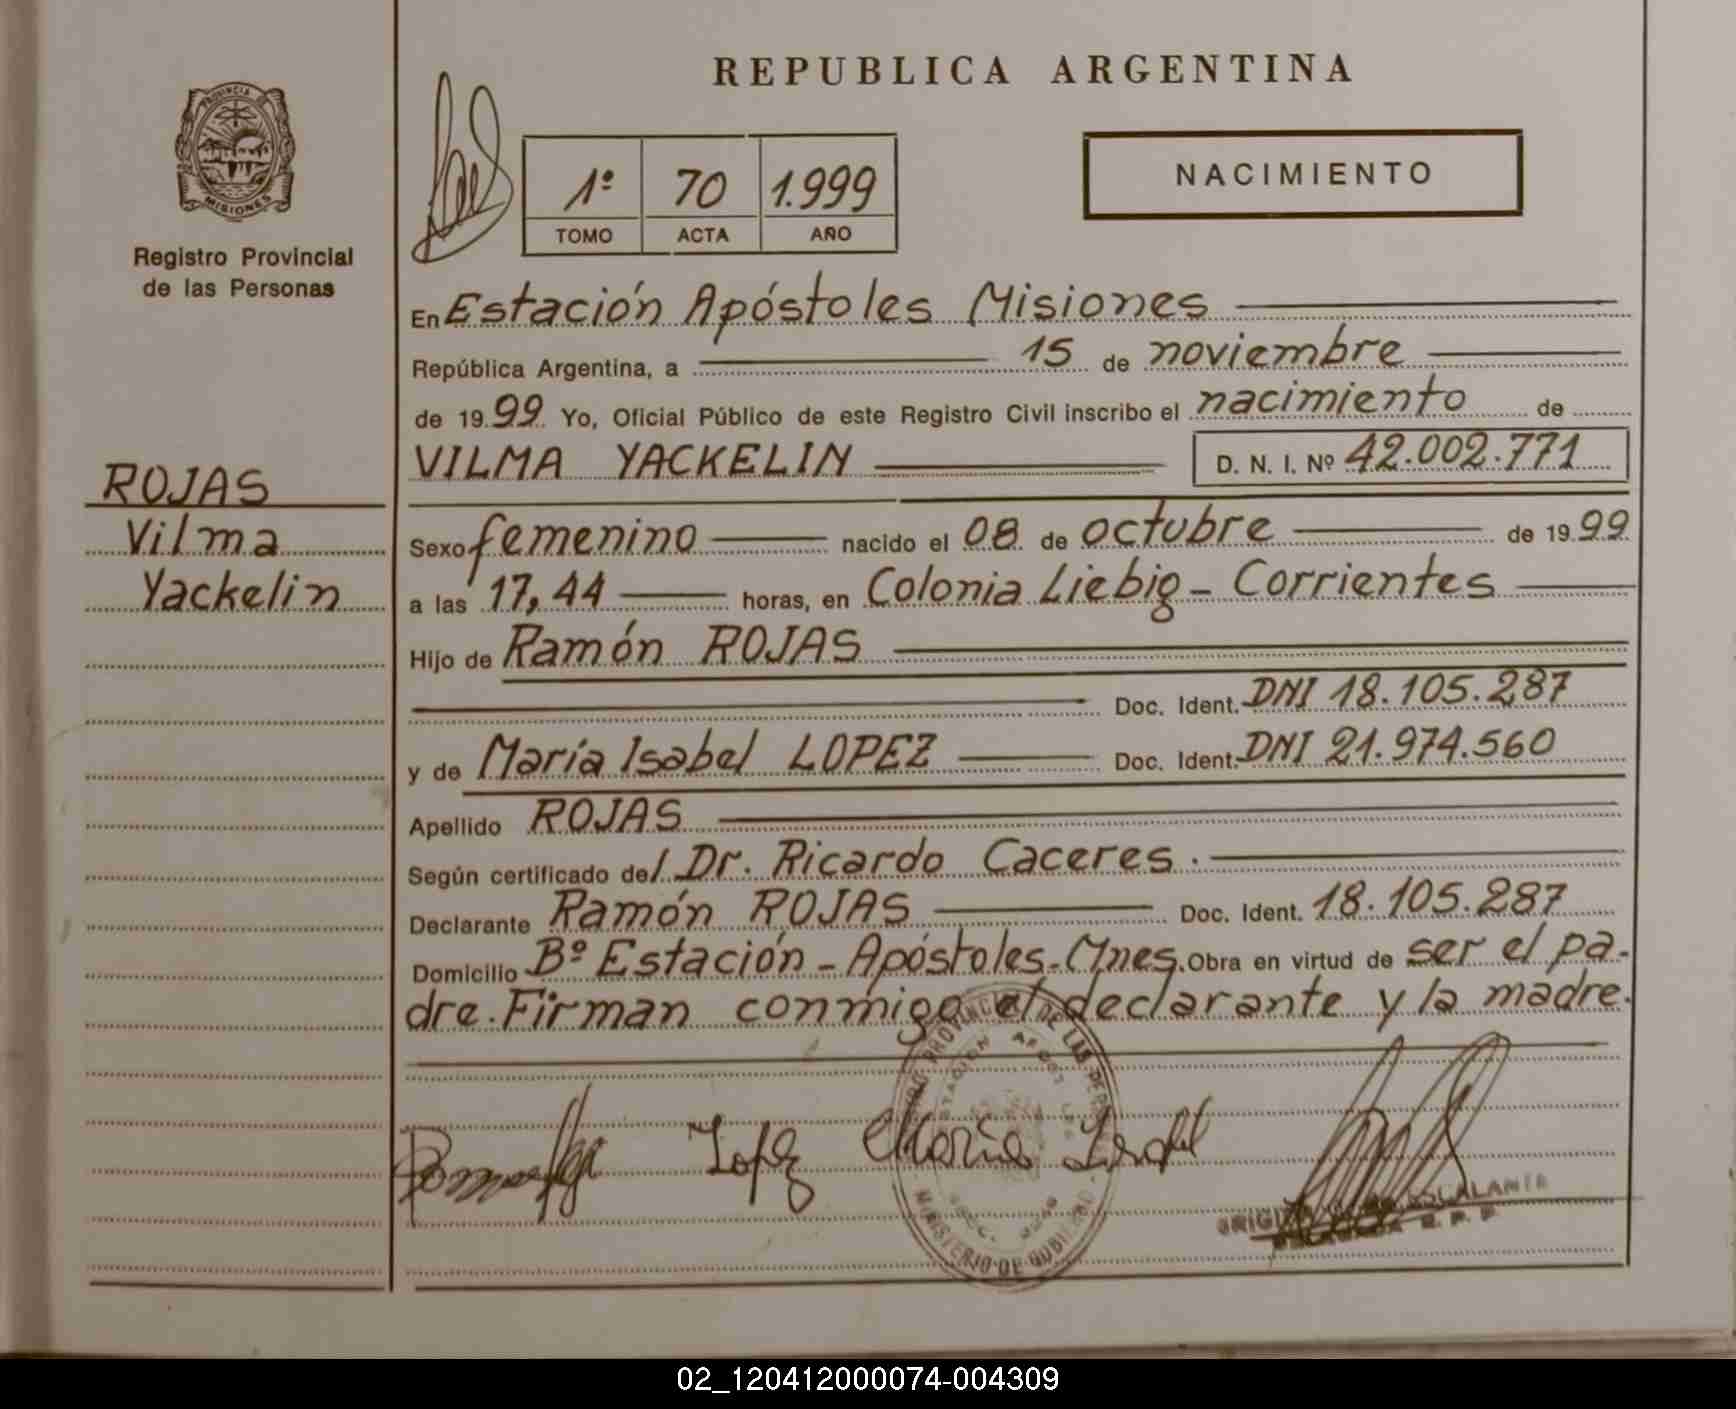 REPUBLICA ARGENTINA
PROVINCIA DE
MISIONES
Registro Provincial
de las Personas
1º 70 1.999
TOMO ACTA AÑO
NACIMIENTO
En Estación Apóstoles Misiones
República Argentina, a 15 de noviembre
de 19 99 Yo, Oficial Público de este Registro Civil inscribo el nacimiento de
VILMA YACKELIN D. N. I. Nº 42.002.771
ROJAS
Vilma
Yackelin
Sexo femenino nacido el 08 de octubre de 19 99
a las 17,44 horas, en Colonia Liebig - Corrientes
Hijo de Ramón ROJAS
Doc. Ident. DNI 18.105.287
y de María Isabel LOPEZ Doc. Ident. DNI 21.974.560
Apellido ROJAS
Según certificado del Dr. Ricardo Caceres.
Declarante Ramón ROJAS Doc. Ident. 18.105.287
Domicilio Bº Estación - Apóstoles - Mnes. Obra en virtud de ser el pa-
dre. Firman conmigo el declarante y la madre.
PROVINCIAL DE LAS
ESTACION
MINISTERIO DE GOBIERNO
Lopez María Isabel
ESCALANTE
02_120412000074-004309